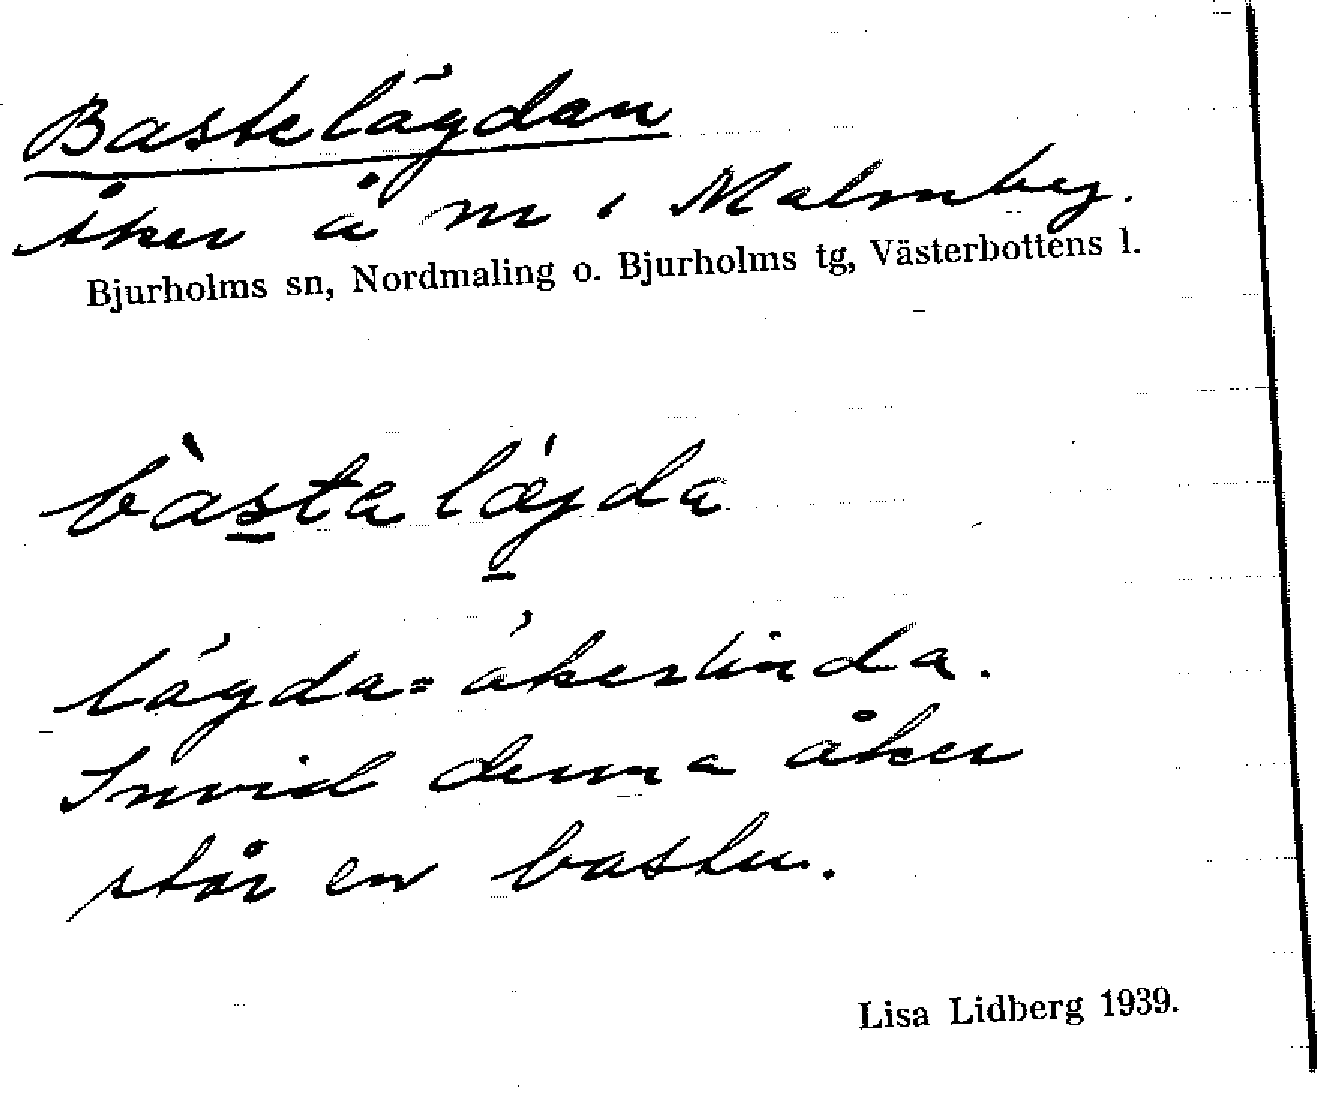 Bastelägdan
Åker å nr 1 Malmby.
Bjurholms sn, Nordmaling o. Bjurholms tg, Västerbottens l.
bàsta lǽgda
lägda = åkerlinda.
Invid denna åker
står en bastu.
Lisa Lidberg 1939.